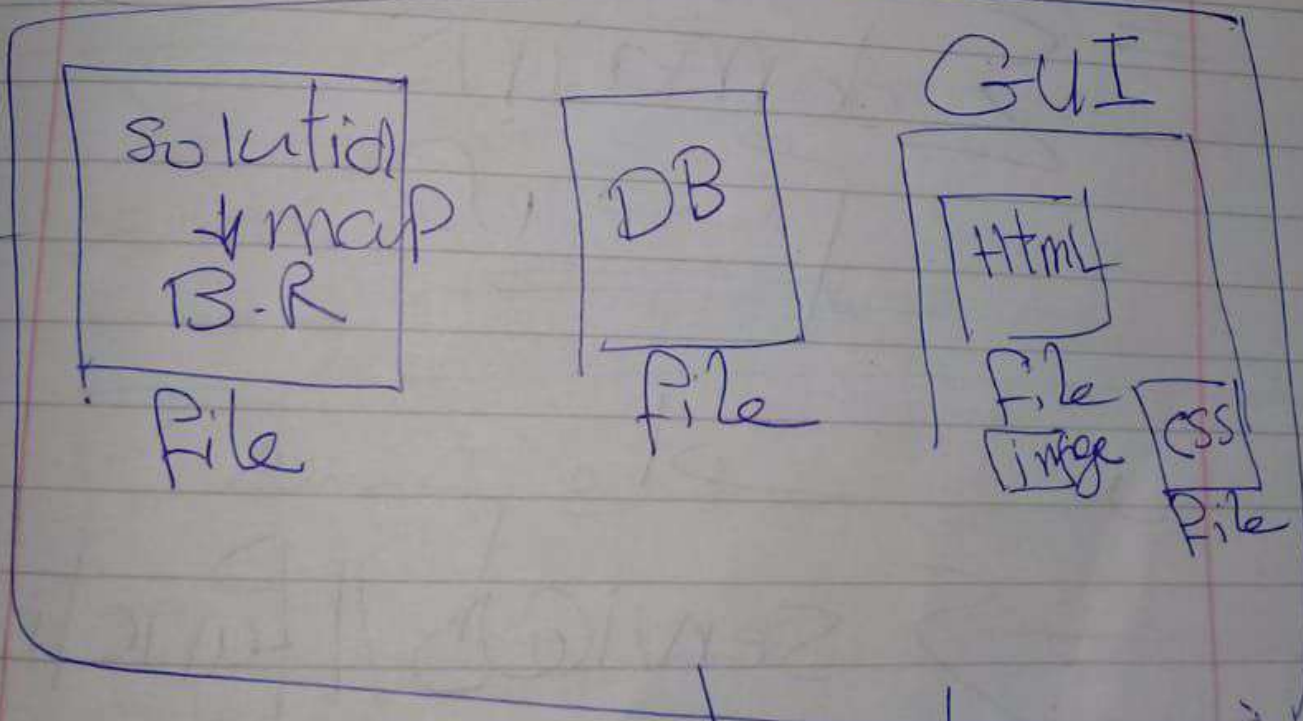 Solution
↓ map
B.R
file
DB
file
GUI
Html
file
image
CSS
file